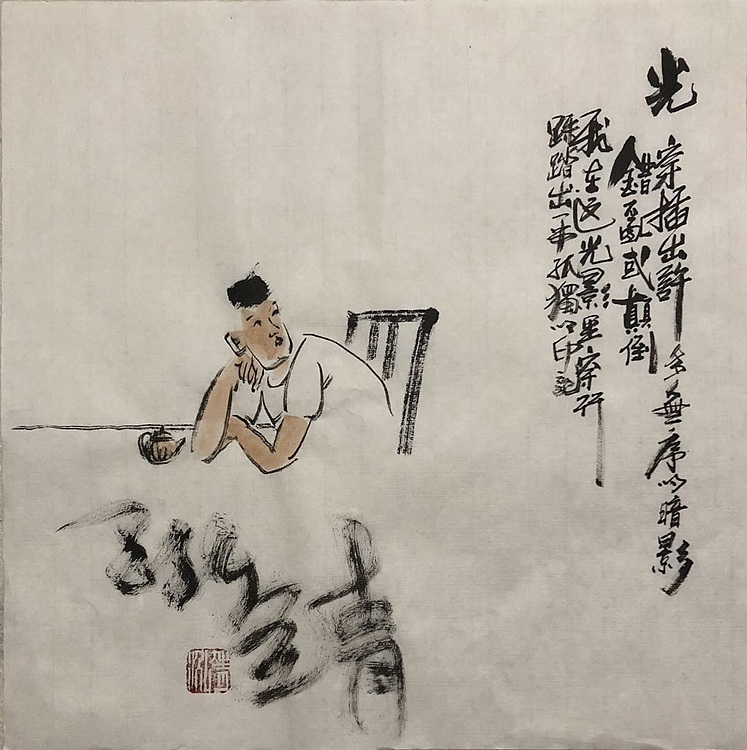 光 穿插出許多無序的暗影
錯亂或顛倒
我在这光影里穿行
踩踏出一串孤獨的印記